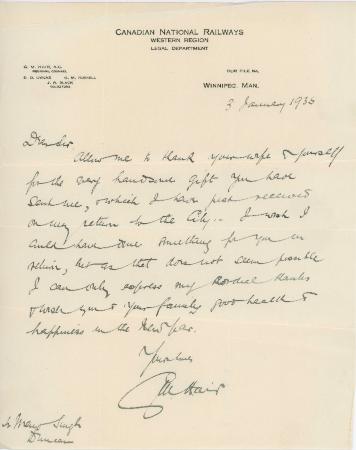 CANADIAN NATIONAL RAILWAYS
WESTERN REGION
LEGAL DEPARTMENT
G. M. HAIR, K.C.
REGIONAL COUNSEL
J. R. BLACK
SOLICITORS
OUR FILE NO.
WINNIPEG, MAN.
3 January 1936
Dear Sir
Allow me to thank your wife & yourself
for the very handsome gift you have
sent me, & which I have just received
on my return to the City. - I wish I
could have done something for you in
return, but as that does not seem possible
I can only express my cordial thanks
& wish you & your family good health &
happiness in the New Year.
Yours truly
GM Hair
Mayo Singh
Duncan